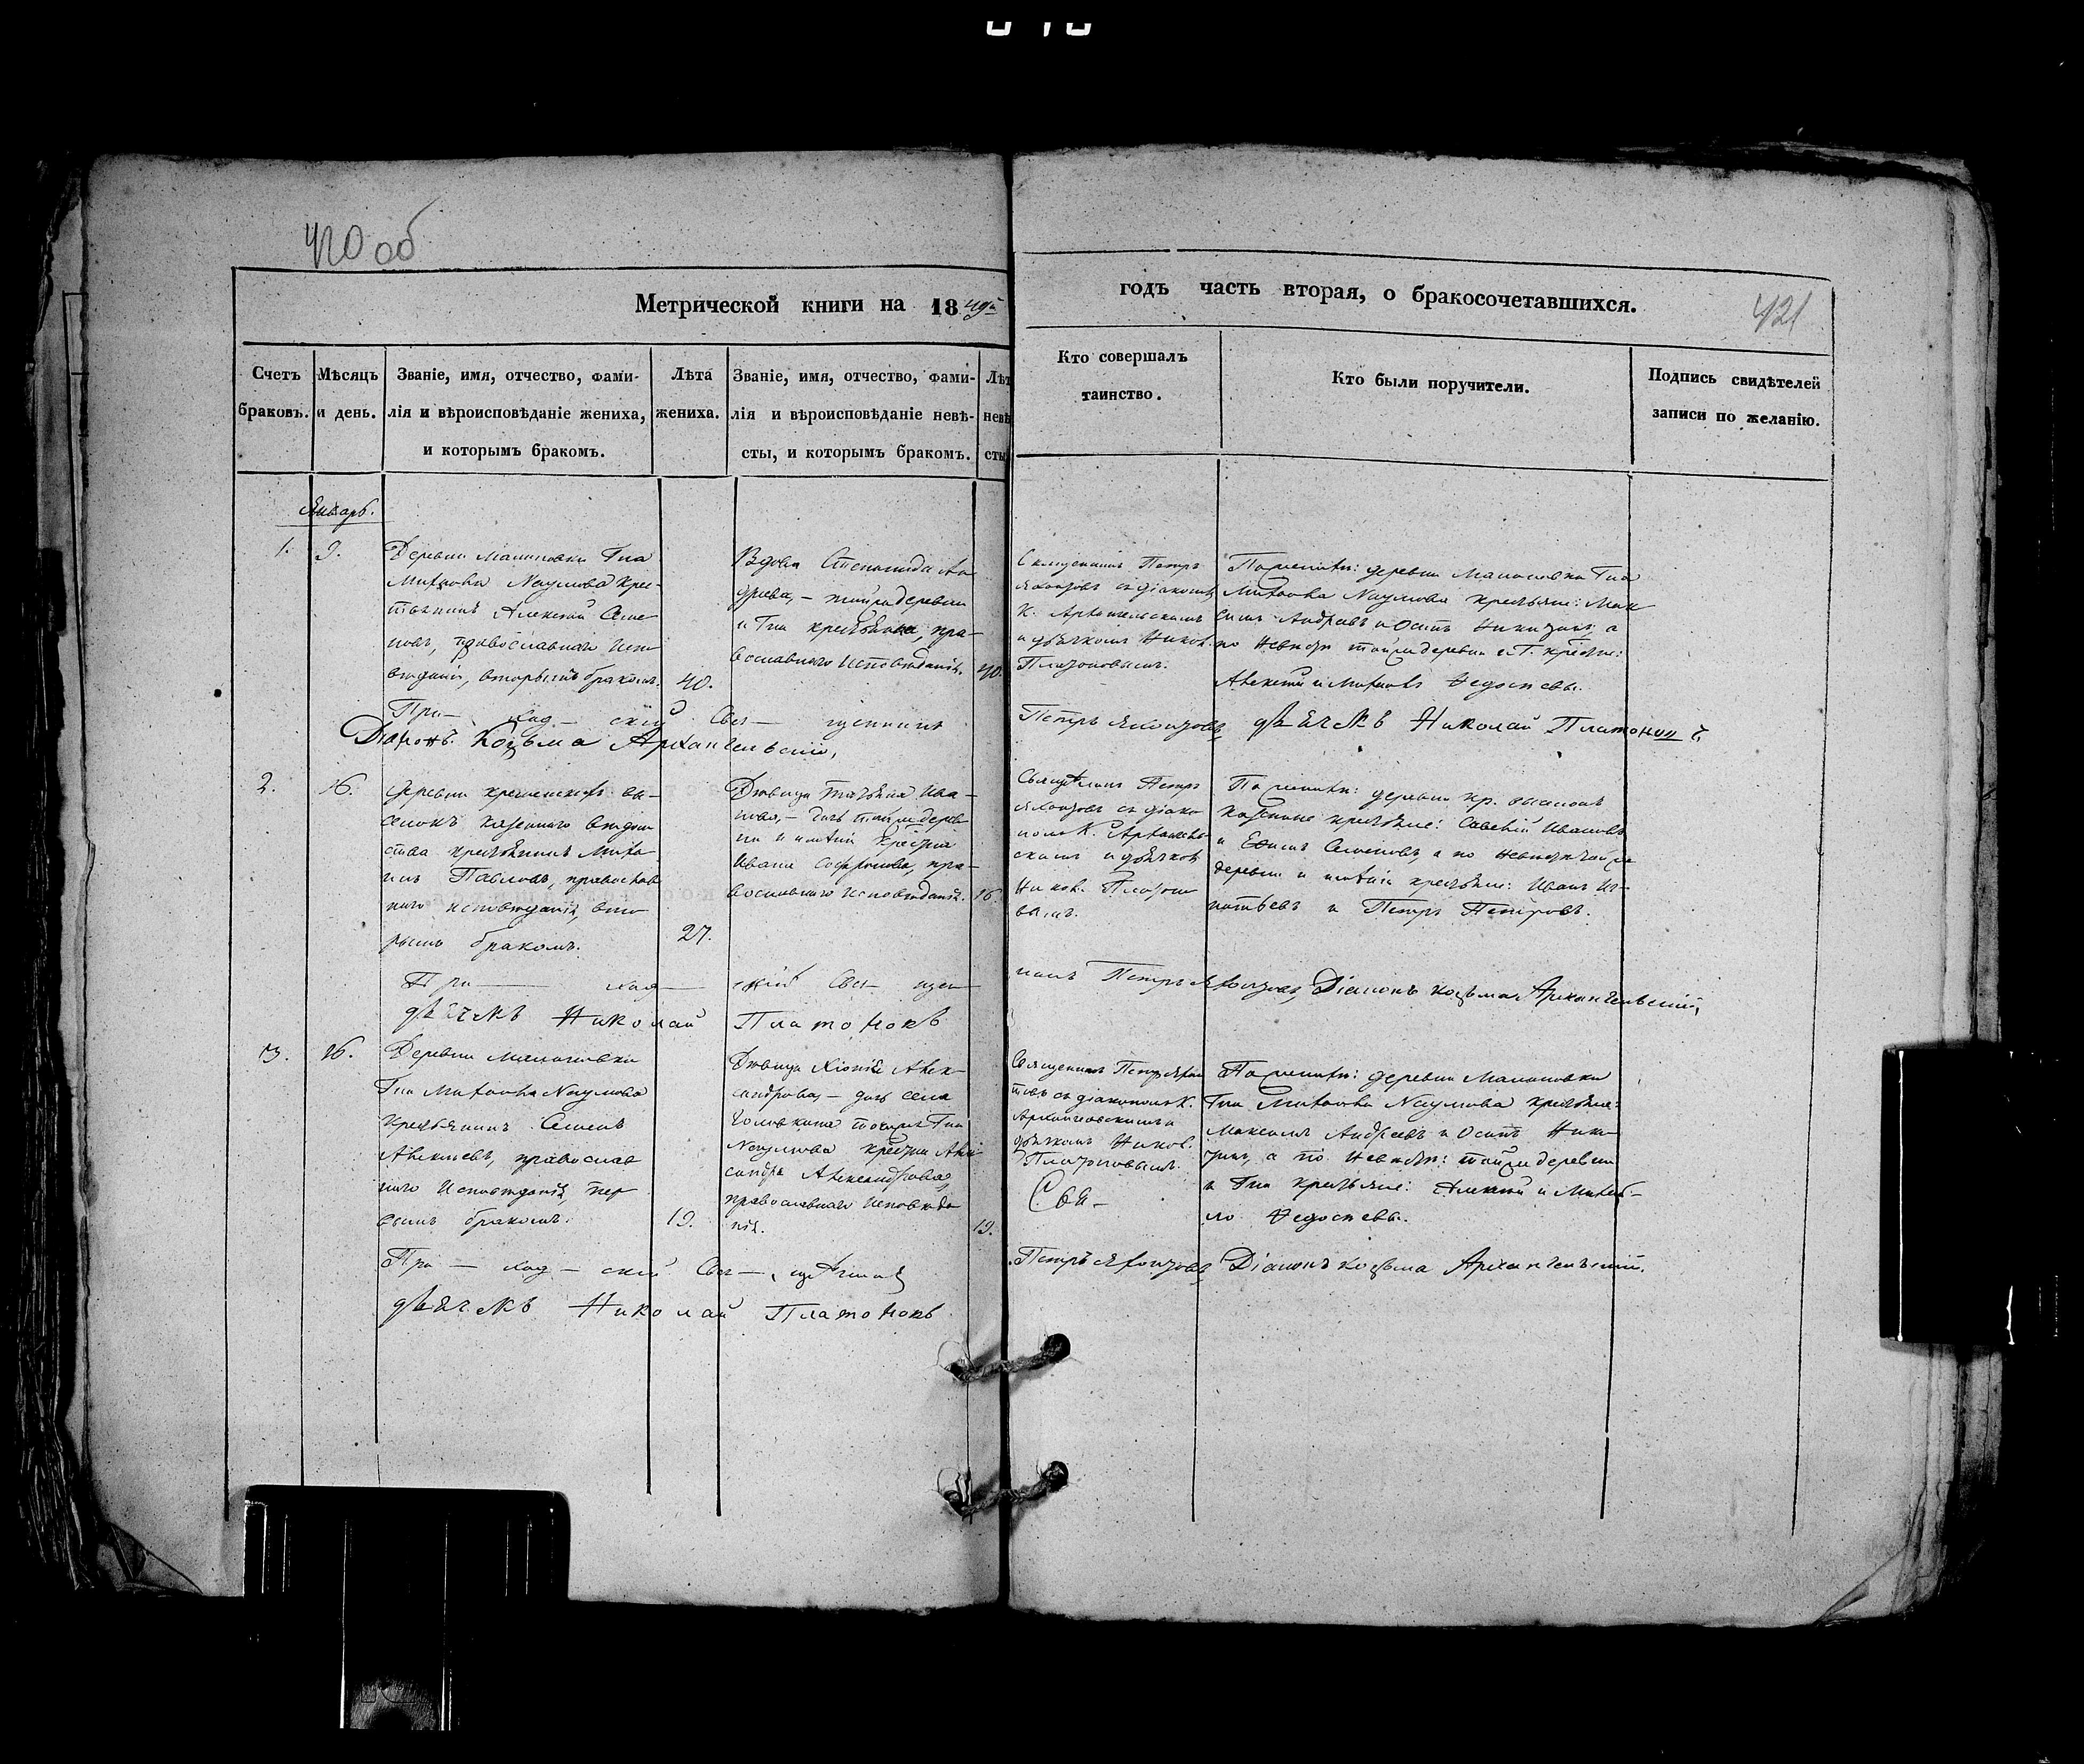 420 об
421
Метрической книги на 1849й годъ часть вторая, о бракосочетавшихся.
Счетъ браковъ.
Мѣсяцъ и день.
Званіе, имя, отчество, фами-
лія и вѣроисповѣданіе жениха,
и которымъ бракомъ.
Лѣта
жениха.
Званіе, имя, отчество, фами-
лія и вѣроисповѣданіе невѣ-
сты, и которымъ бракомъ.
Лѣт
невѣ
сты
Кто совершалъ
таинство.
Кто были поручители.
Подпись свидѣтелей
записи по желанію.
Январь.
1.
9.
Деревни Малиновки Гна
Михайла Наумова крес-
тьянинъ Алексѣй Семе-
новъ, православнаго испо
вѣданія, вторымъ бракомъ.
40.
Вдова Степанида Ан
дреева, – тойже деревни
и Гна крестьянка, пра-
вославнаго исповѣданія.
40.
Священникъ Петръ
съ діакономъ
К. Архангельскимъ
и дьячкомъ Никол.
Платоновымъ.
По женихѣ: деревни Малиновки Гна
Михайла Наумова крестьяне: Мак
симъ Андреевъ и Осипъ Никитинъ, а
по невѣстѣ тойже деревни и Г. крестьяне:
Алексѣй и Михаилъ
При – ход – скій Свя – щенникъ Петръ
дьячекъ Николай Платоновъ
Діаконъ Козьма Архангельскій,
2.
16.
Деревни
казеннаго вѣдом
ства крестьянинъ Миха
илъ Павловъ, православ
наго исповѣданія, вто
рымъ бракомъ.
27.
Дѣвица Татьяна Ива –
нова, – дочь тойже дерев
ни и имѣнія крестьянина
Ивана Софронова, пра-
вославнаго исповѣданія.
16.
Священникъ Петръ
съ діако-
номъ К. Архангель
скимъ и дьячкомъ
Никол. Платоно
вымъ.
По женихѣ: деревни кр.
казенные крестьяне: Савелій Ивановъ
и Ефимъ Семеновъ, а по невѣстѣ тойже
деревни и имѣнія крестьяне: Иванъ Иг-
натьевъ и Петръ Петровъ.
При – ход – скій Свя – щен – никъ Петръ
Діаконъ Козьма Архангельскій,
дьячекъ Николай Платоновъ
3.
16.
Деревни Малиновки
Гна Михайла Наумова
крестьянинъ Семенъ
Алексѣевъ, православ
наго исповѣданія, пер
вымъ бракомъ.
19.
Дѣвица Хіонія Алек-
сандрова, – дочь села
тогоже Гна
Наумова крестьянина Алек
сандра Александрова,
православнаго исповѣда
нія.
19.
Священникъ Петръ
съ діакономъ К.
Архангельскимъ и
дьячкомъ Никол.
Платоновымъ.
Свя –
По женихѣ: деревни Малиновки
Гна Михайла Наумова крестьяне:
Максимъ Андреевъ и Осипъ Ники-
тинъ, а по невѣстѣ: тойже деревни
и Гна крестьяне: Алексѣй и Михай-
ло
При – ход – скій Свя – щенникъ Петръ
Діаконъ Козьма Архангельскій.
дьячекъ Николай Платоновъ